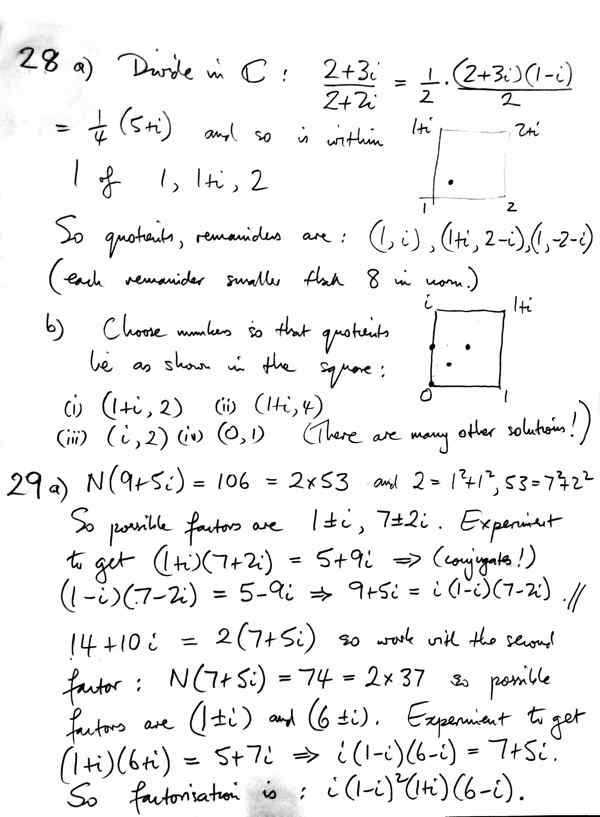 28 a) Divide in ℂ : (2+3i)/(2+2i) = 1/2 · (2+3i)(1-i)/2
= 1/4 (5+i) and so is within
1 of 1, 1+i, 2
1+i 2+i
1 2
So quotients, remainders are: (1,i), (1+i, 2-i), (1,-2-i)
(each remainder smaller than 8 in norm.)
b) Choose numbers so that quotients
lie as shown in the square:
i 1+i
0 1
(i) (1+i, 2) (ii) (1+i, 4)
(iii) (i, 2) (iv) (0,1) (There are many other solutions!)
29 a) N(9+5i) = 106 = 2×53 and 2 = 1²+1², 53 = 7²+2²
So possible factors are 1±i, 7±2i. Experiment
to get (1+i)(7+2i) = 5+9i ⇒ (conjugates!)
(1-i)(7-2i) = 5-9i ⇒ 9+5i = i(1-i)(7-2i). //
14+10i = 2(7+5i) so work with the second
factor: N(7+5i) = 74 = 2×37 so possible
factors are (1±i) and (6±i). Experiment to get
(1+i)(6+i) = 5+7i ⇒ i(1-i)(6-i) = 7+5i.
So factorisation is: i(1-i)²(1+i)(6-i).